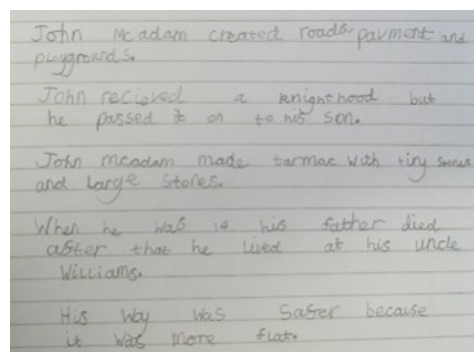 John Mcadam created roads, payment and
playgrounds.
John recieved a knighthood but
he passed it on to his son.
John mcadam made tarmac with tiny stones
and large stones.
When he was 14 his father died
after that he lived at his uncle
Williams.
His way was safer because
it was more flat.